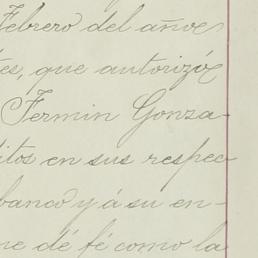 Febrero del año
es, que autorizó
Fermin Gonza-
itos en sus respec
banco y á su en-
ue dé fé como la